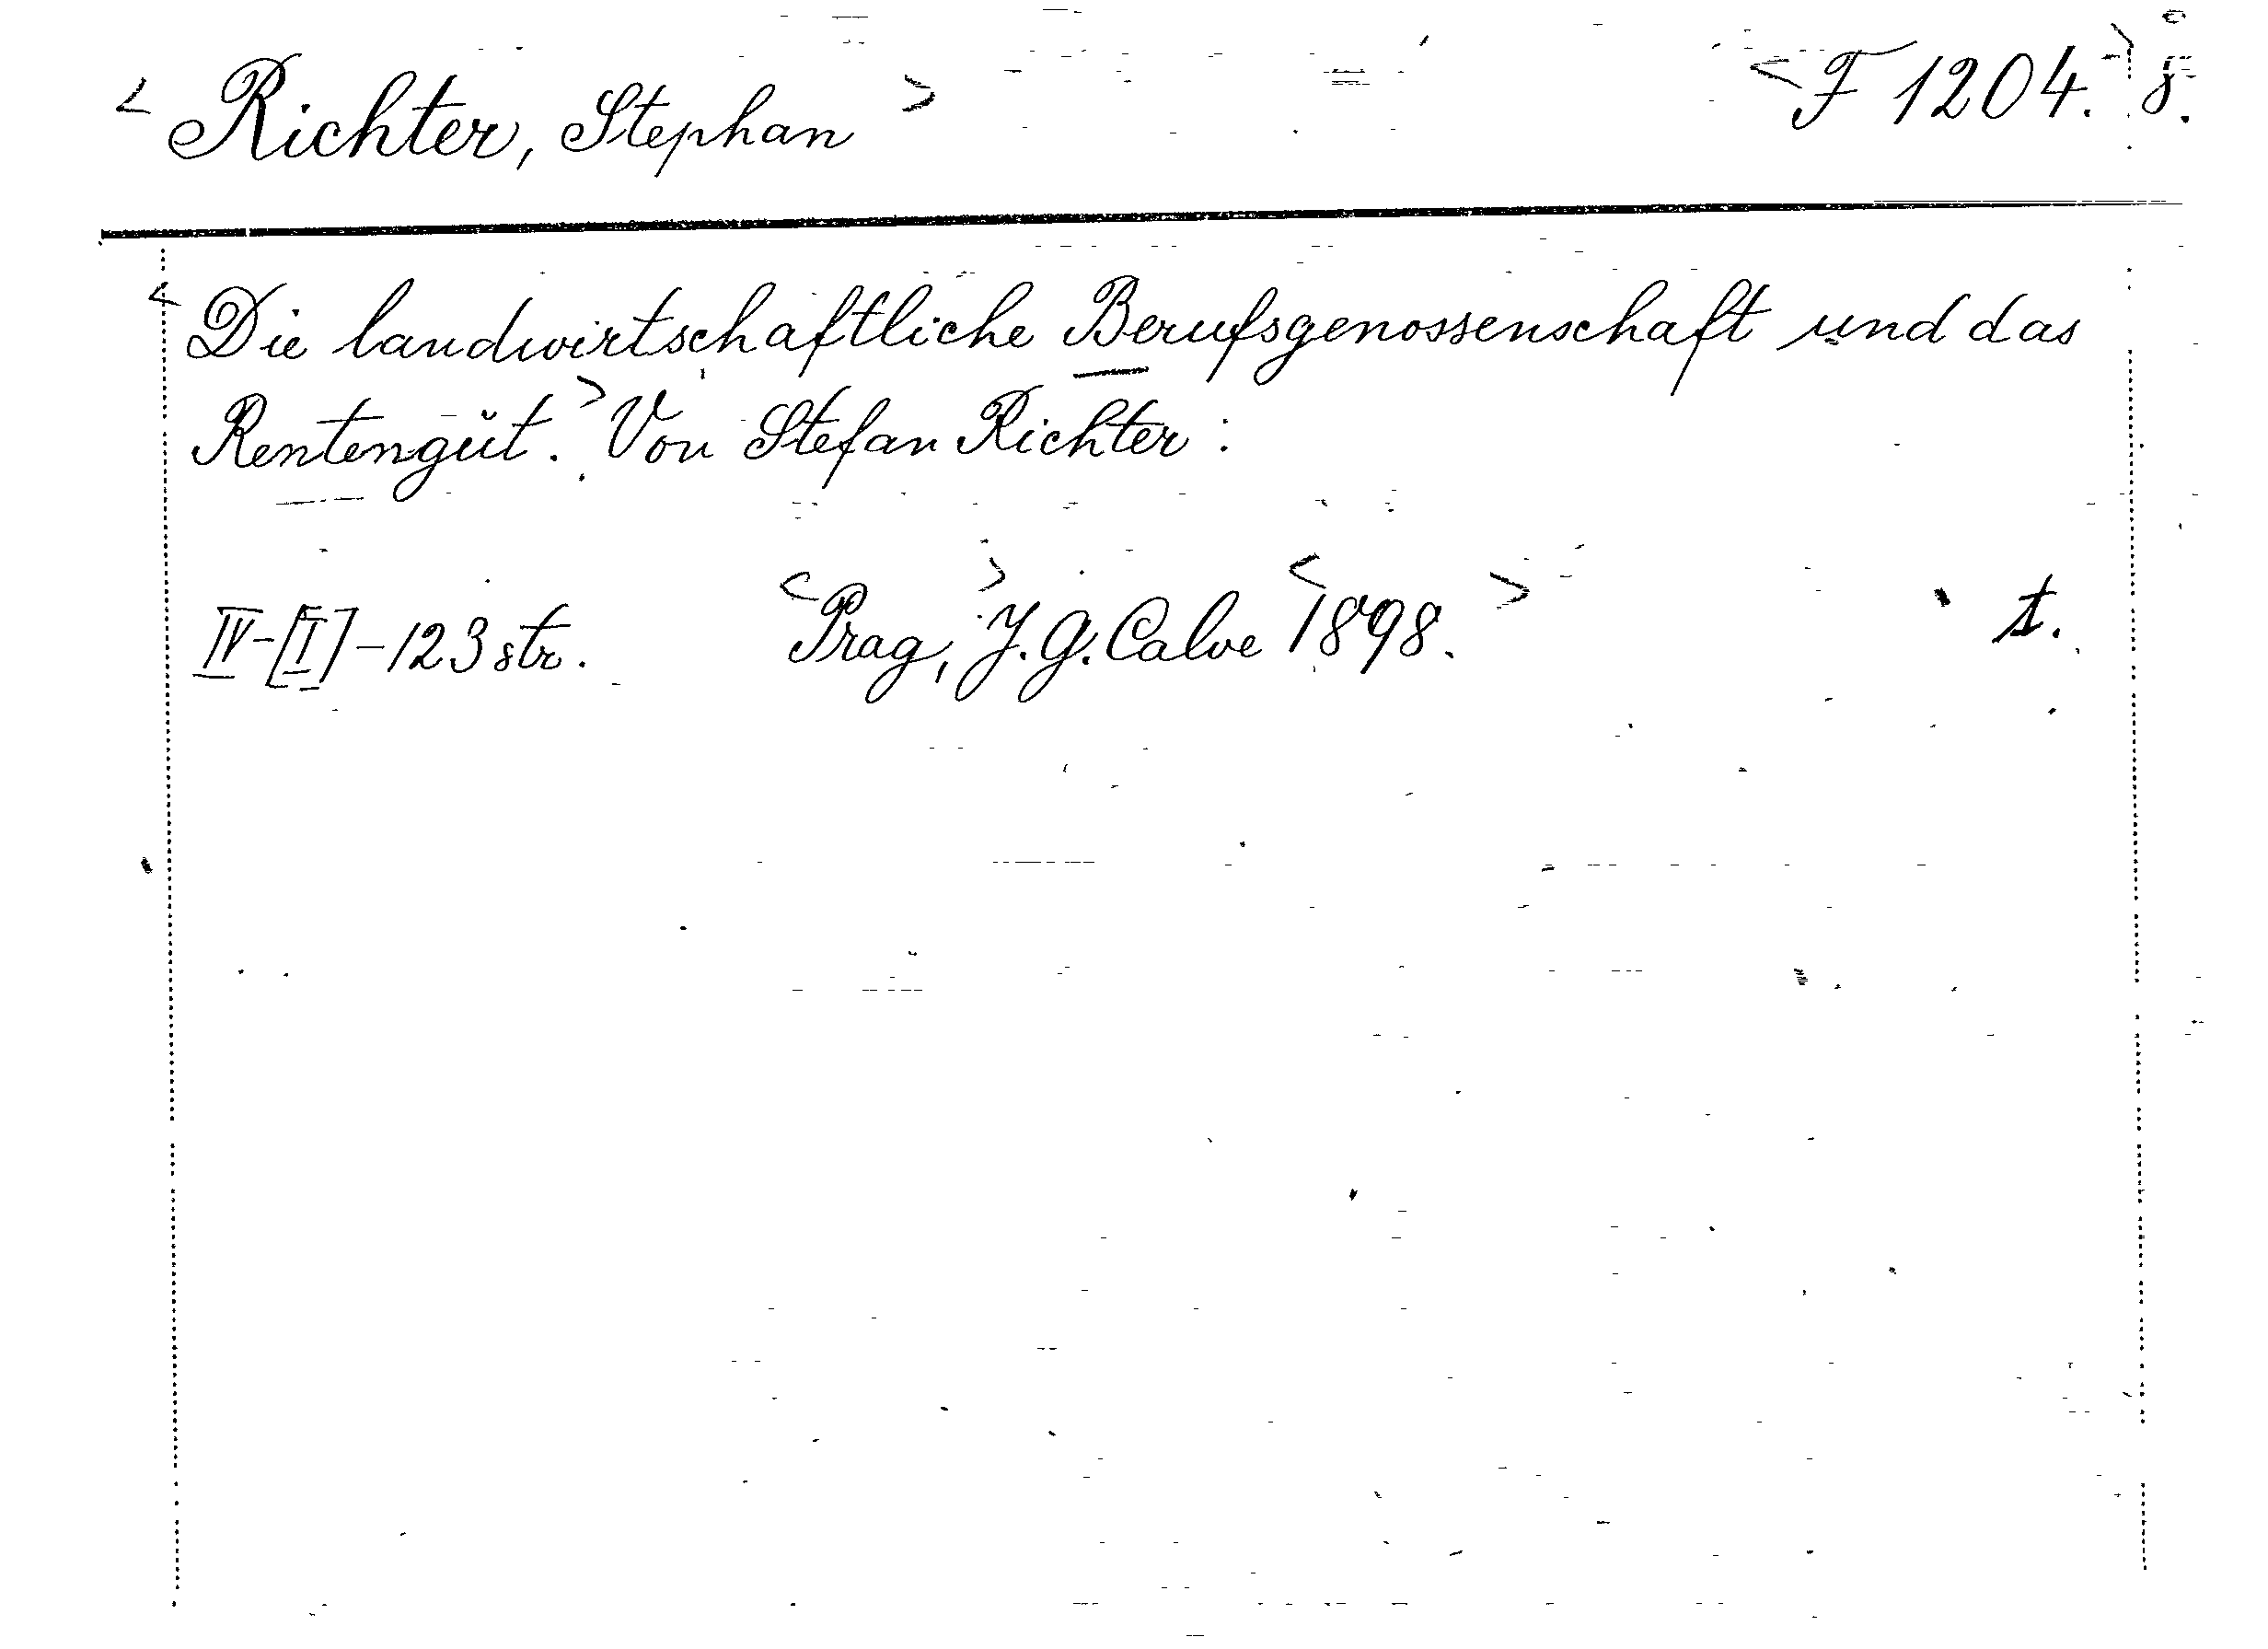 < Richter, Stephan > <F 1204.> 8.
< Die landwirtschaftliche Berufsgenossenschaft und das
Rentengŭt.> Von Stefan Richter:
IV-[I]-123 str. <Prag,> J. G. Calve <1898.> t.